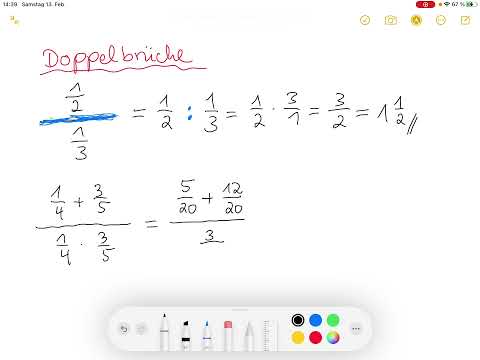 14:39 Samstag 13. Feb. 67 %
Doppelbrüche
1/2 / 1/3 = 1/2 : 1/3 = 1/2 · 3/1 = 3/2 = 1 1/2 //
(1/4 + 3/5) / (1/4 · 3/5) = (5/20 + 12/20) / 3